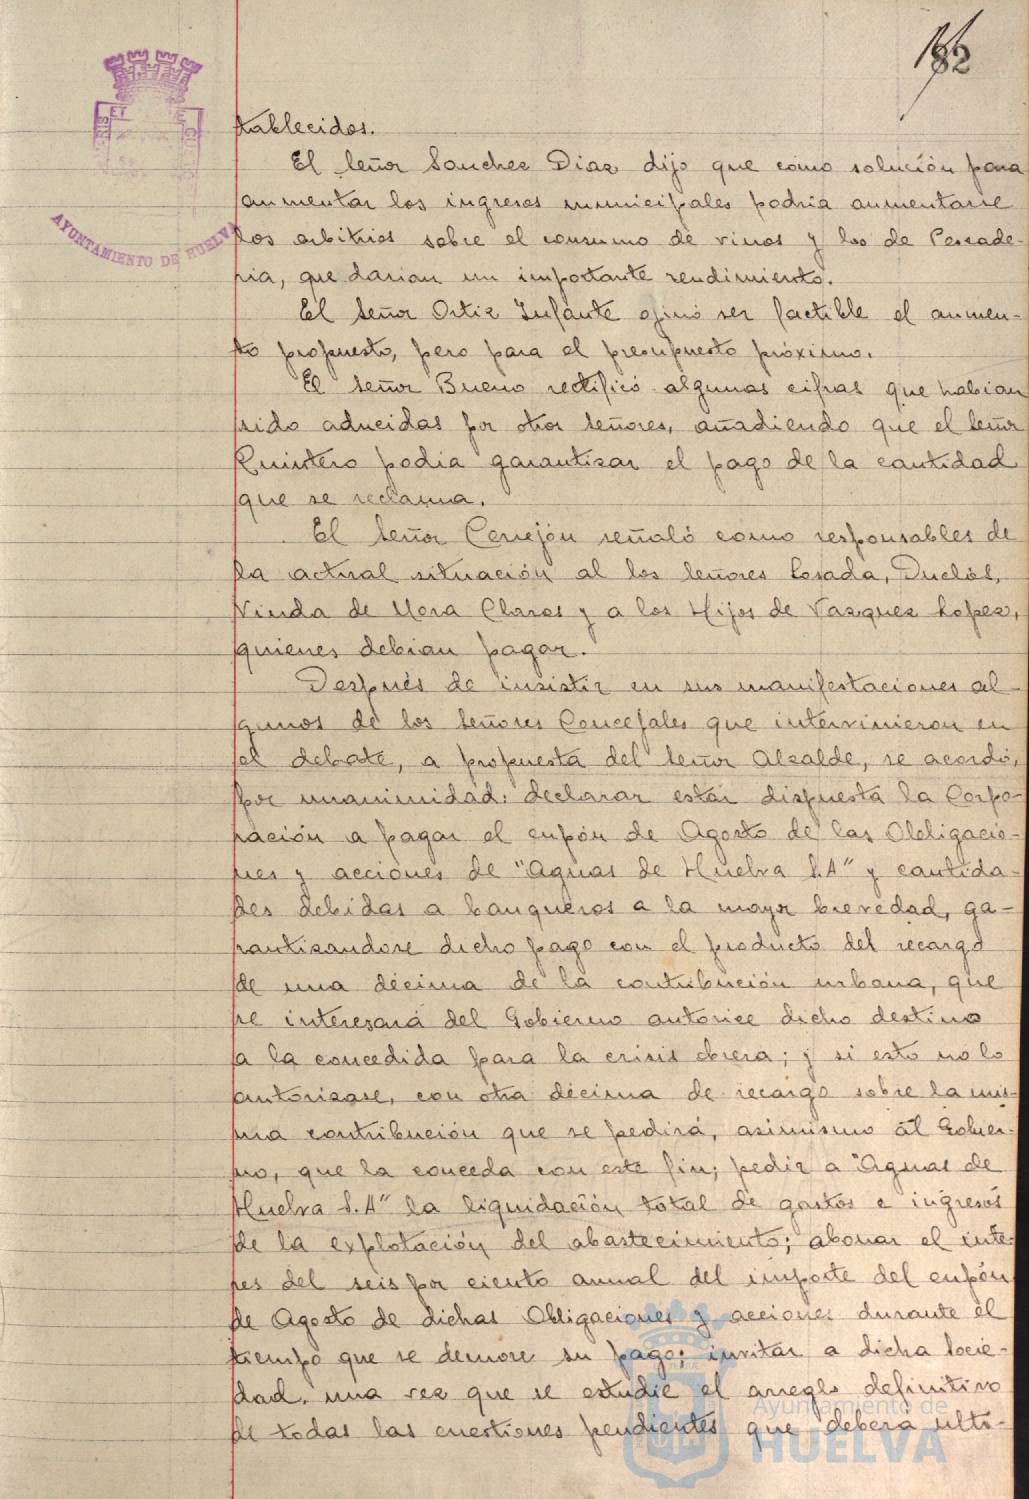 82
tablecidos.
El señor Sanchez Diaz dijo que como solución para
aumentar los ingresos municipales podria aumentarse
los arbitrios sobre el consumo de vinos y los de Pescade-
ria, que darian un importante rendimiento.
El señor Ortiz Infante opinó ser factible el aumen-
to propuesto, pero para el presupuesto próximo.
El señor Bueno rectificó algunas cifras que habian
sido aducidas por otros señores, añadiendo que el señor
Quintero podia garantizar el pago de la cantidad
que se reclama.
El señor Cerrejón señaló como responsables de
la actual situación al los señores Losada, Duclós,
Viuda de Mora Claros y a los Hijos de Vazquez Lopez,
quienes debian pagar.
Después de insistir en sus manifestaciones al-
gunos de los señores Concejales que intervinieron en
el debate, a propuesta del señor Alcalde, se acordó,
por unanimidad: declarar estar dispuesta la Corpo-
ración a pagar el cupón de Agosto de las Obligacio-
nes y acciones de "Aguas de Huelva S.A" y cantida-
des debidas a banqueros a la mayor brevedad, ga-
rantizandose dicho pago con el producto del recargo
de una décima de la contribución urbana, que
se interesará del Gobierno autorice dicho destino
a la concedida para la crisis obrera; y si esto no lo
autorizase, con otra décima de recargo sobre la mis-
ma contribución que se pedirá, asimismo al Gobier-
no, que la conceda con este fin; pedir a "Aguas de
Huelva S.A" la liquidación total de gastos e ingresos
de la explotación del abastecimiento; abonar el inte-
res del seis por ciento anual del importe del cupón
de Agosto de dichas Obligaciones y acciones durante el
tiempo que se demore su pago; invitar a dicha Socie-
dad, una vez que se estudie el arreglo definitivo
de todas las cuestiones pendientes que deberá ulti-
AYUNTAMIENTO DE HUELVA
Ayuntamiento de
HUELVA